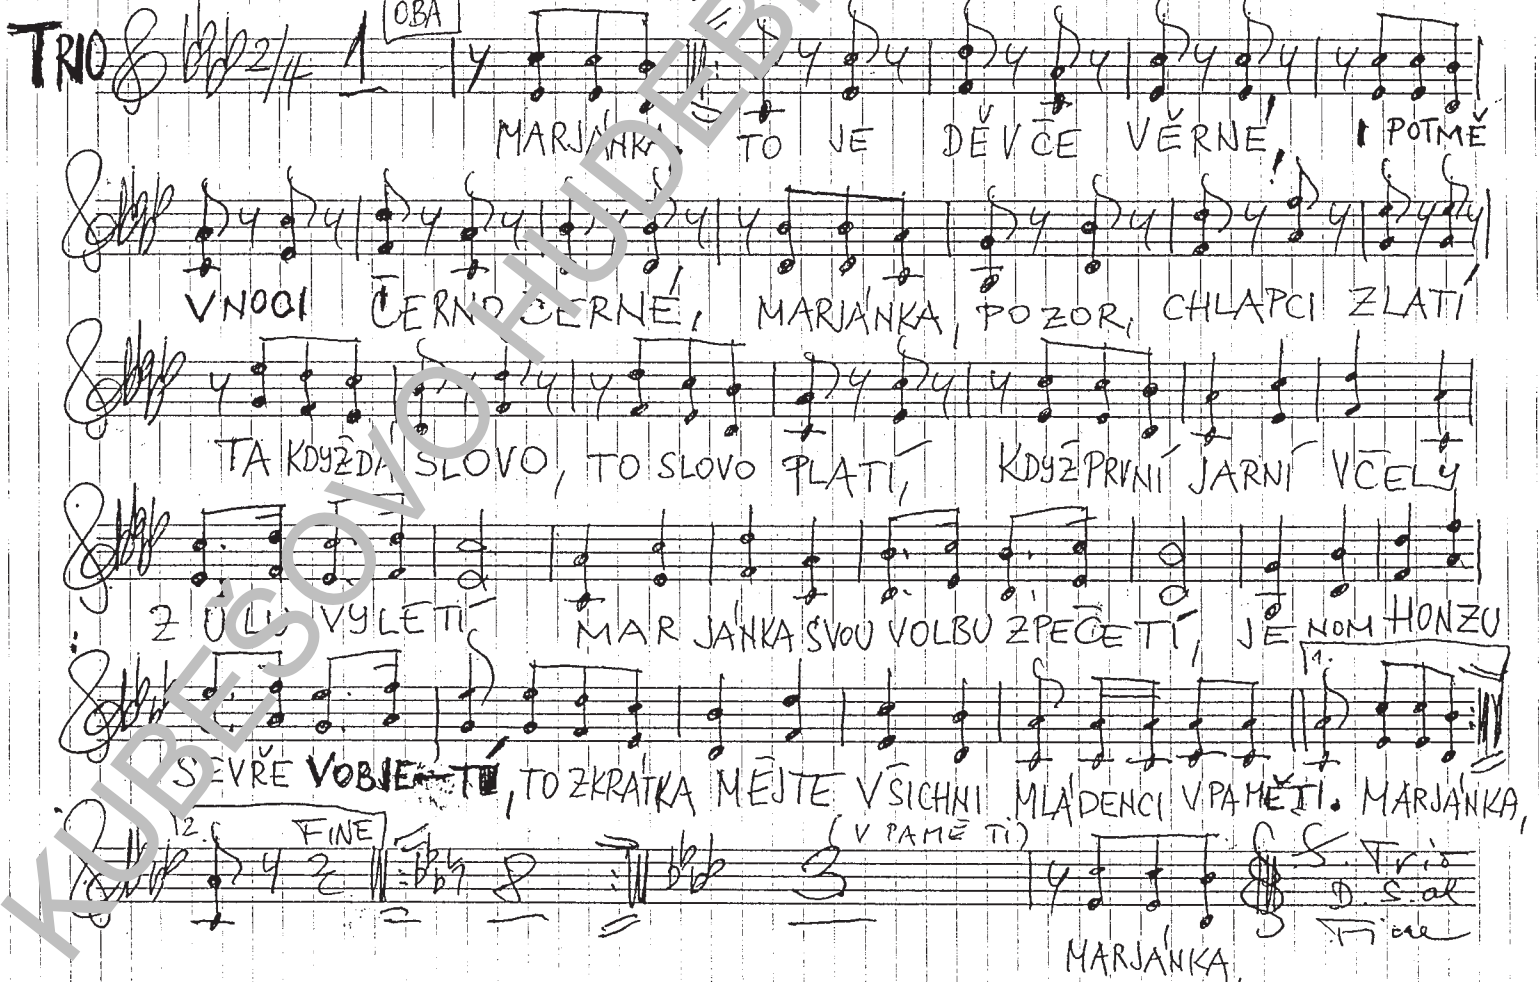 TRIO 2/4 1 OBA
MARJÁNKA, TO JE DĚVČE VĚRNÉ, I POTMĚ
V NOCI ČERNOČERNÉ, MARJÁNKA, POZOR, CHLAPCI ZLATÍ
TA KDYŽ DÁ SLOVO, TO SLOVO PLATÍ, KDYŽ PRVNÍ JARNÍ VČELY
Z ÚLU VYLETÍ MARJÁNKA SVOU VOLBU ZPEČETÍ, JENOM HONZU
1.
SEVŘE V OBJETÍ, TO ZKRÁTKA MĚJTE VŠICHNI MLÁDENCI V PAMĚTI. MARJÁNKA,
2. FINE 8 3 (V PAMĚTI) Trio D.S. al Fine
MARJÁNKA,
KUBEŠOVO HUDEB